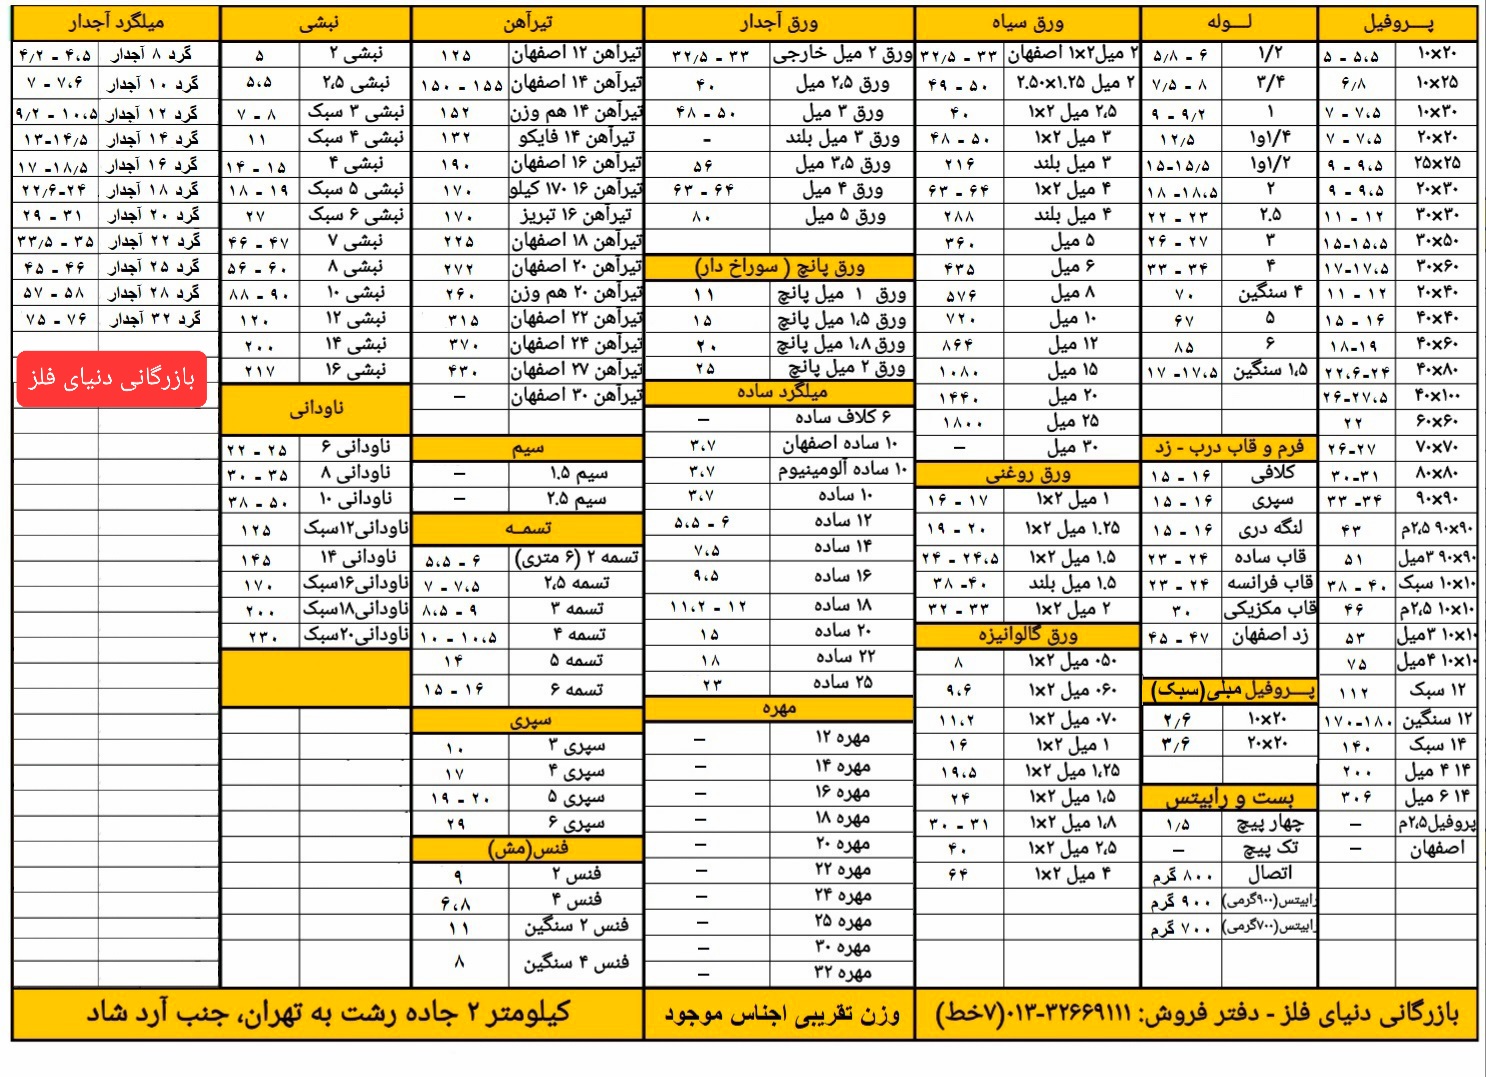 پـــروفیل
۱۰×۲۰ ۵ - ۵،۵
۱۰×۲۵ ۶٫۸
۱۰×۳۰ ۷ - ۷،۵
۲۰×۲۰ ۷ - ۷،۵
۲۵×۲۵ ۹ - ۹،۵
۲۰×۳۰ ۹ - ۹،۵
۳۰×۳۰ ۱۱ - ۱۲
۳۰×۵۰ ۱۵-۱۵،۵
۳۰×۶۰ ۱۷-۱۷،۵
۲۰×۴۰ ۱۱ - ۱۲
۴۰×۴۰ ۱۵ - ۱۶
۴۰×۶۰ ۱۸-۱۹
۴۰×۸۰ ۲۲،۶-۲۴
۴۰×۱۰۰ ۲۶-۲۷،۵
۶۰×۶۰ ۲۲
۷۰×۷۰ ۲۶-۲۷
۸۰×۸۰ ۳۰-۳۱
۹۰×۹۰ ۳۳ -۳۴
۹۰×۹۰ ۲،۵م ۴۳
۹۰×۹۰ ۳میل ۵۱
۱۰×۱۰ سبک ۳۸ - ۴۰
۱۰×۱۰ ۲،۵م ۴۶
۱۰×۱۰ ۳میل ۵۳
۱۰×۱۰ ۴میل ۷۵
۱۲ سبک ۱۱۲
۱۲ سنگین ۱۷۰-۱۸۰
۱۴ سبک ۱۴۰
۱۴ ۴ میل ۲۰۰
۱۴ ۶ میل ۳۰۶
پروفیل۲،۵م –
اصفهان –
لـــوله
۱/۲ ۵/۸ - ۶
۳/۴ ۷/۵ - ۸
۱ ۹ - ۹/۲
۱/۴و۱ ۱۲/۵
۱/۲و۱ ۱۵-۱۵/۵
۲ ۱۸ -۱۸،۵
۲.۵ ۲۲ - ۲۳
۳ ۲۶ - ۲۷
۴ ۳۳ - ۳۴
۴ سنگین ۷۰
۵ ۶۷
۶ ۸۵
۱،۵ سنگین ۱۷ -۱۷،۵
فرم و قاب درب - زد
کلافی ۱۵ - ۱۶
سپری ۱۵ - ۱۶
لنگه دری ۱۵ - ۱۶
قاب ساده ۲۳ - ۲۴
قاب فرانسه ۲۳ - ۲۴
قاب مکزیکی ۳۰
زد اصفهان ۴۵ - ۴۷
پـــروفیل مبلی(سبک)
۱۰×۲۰ ۲/۶
۲۰×۲۰ ۳/۶
بست و رابیتس
چهار پیچ ۱/۵
تک پیچ –
اتصال ۸۰۰ گرم
رابیتس(۹۰۰گرمی) ۹۰۰ گرم
رابیتس(۷۰۰گرمی) ۷۰۰ گرم
ورق سیاه
۲ میل۲×۱ اصفهان ۳۲/۵ - ۳۳
۲ میل ۱.۲۵×۲.۵۰ ۴۹ - ۵۰
۲،۵ میل ۲×۱ ۴۰
۳ میل ۲×۱ ۴۸ - ۵۰
۳ میل بلند ۲۱۶
۴ میل ۲×۱ ۶۳ - ۶۴
۴ میل بلند ۲۸۸
۵ میل ۳۶۰
۶ میل ۴۳۵
۸ میل ۵۷۶
۱۰ میل ۷۲۰
۱۲ میل ۸۶۴
۱۵ میل ۱۰۸۰
۲۰ میل ۱۴۴۰
۲۵ میل ۱۸۰۰
۳۰ میل –
ورق روغنی
۱ میل ۲×۱ ۱۶ - ۱۷
۱.۲۵ میل ۲×۱ ۱۹ - ۲۰
۱.۵ میل ۲×۱ ۲۴ - ۲۴،۵
۱.۵ میل بلند ۳۸ -۴۰
۲ میل ۲×۱ ۳۲ - ۳۳
ورق گالوانیزه
۰۵۰ میل ۲×۱ ۸
۰۶۰ میل ۲×۱ ۹،۶
۰۷۰ میل ۲×۱ ۱۱،۲
۱ میل ۲×۱ ۱۶
۱،۲۵ میل ۲×۱ ۱۹،۵
۱،۵ میل ۲×۱ ۲۴
۱،۸ میل ۲×۱ ۳۰ - ۳۱
۲،۵ میل ۲×۱ ۴۰
۴ میل ۲×۱ ۶۴
ورق آجدار
ورق ۲ میل خارجی ۳۲/۵ - ۳۳
ورق ۲،۵ میل ۴۰
ورق ۳ میل ۴۸ - ۵۰
ورق ۳ میل بلند –
ورق ۳،۵ میل ۵۶
ورق ۴ میل ۶۳ - ۶۴
ورق ۵ میل ۸۰
ورق پانچ ( سوراخ دار)
ورق ۱ میل پانچ ۱۱
ورق ۱،۵ میل پانچ ۱۵
ورق ۱،۸ میل پانچ ۲۰
ورق ۲ میل پانچ ۲۵
میلگرد ساده
۶ کلاف ساده –
۱۰ ساده اصفهان ۳،۷
۱۰ ساده آلومینیوم ۳،۷
۱۰ ساده ۳،۷
۱۲ ساده ۵،۵ - ۶
۱۴ ساده ۷،۵
۱۶ ساده ۹،۵
۱۸ ساده ۱۱،۲ - ۱۲
۲۰ ساده ۱۵
۲۲ ساده ۱۸
۲۵ ساده ۲۳
مهره
مهره ۱۲ –
مهره ۱۴ –
مهره ۱۶ –
مهره ۱۸ –
مهره ۲۰ –
مهره ۲۲ –
مهره ۲۴ –
مهره ۲۵ –
مهره ۳۰ –
مهره ۳۲ –
تیرآهن
تیرآهن ۱۲ اصفهان ۱۲۵
تیرآهن ۱۴ اصفهان ۱۵۰ - ۱۵۵
تیرآهن ۱۴ هم وزن ۱۵۲
تیرآهن ۱۴ فایکو ۱۳۲
تیرآهن ۱۶ اصفهان ۱۹۰
تیرآهن ۱۶ ۱۷۰ کیلو ۱۷۰
تیرآهن ۱۶ تبریز ۱۷۰
تیرآهن ۱۸ اصفهان ۲۲۵
تیرآهن ۲۰ اصفهان ۲۷۲
تیرآهن ۲۰ هم وزن ۲۶۰
تیرآهن ۲۲ اصفهان ۳۱۵
تیرآهن ۲۴ اصفهان ۳۷۰
تیرآهن ۲۷ اصفهان ۴۳۰
تیرآهن ۳۰ اصفهان –
سیم
سیم ۱.۵ –
سیم ۲.۵ –
تسمـه
تسمه ۲ (۶ متری) ۵،۵ - ۶
تسمه ۲،۵ ۷ - ۷،۵
تسمه ۳ ۸،۵ - ۹
تسمه ۴ ۱۰ - ۱۰،۵
تسمه ۵ ۱۴
تسمه ۶ ۱۵ - ۱۶
سپری
سپری ۳ ۱۰
سپری ۴ ۱۷
سپری ۵ ۱۹ - ۲۰
سپری ۶ ۲۹
فنس(مش)
فنس ۲ ۹
فنس ۴ ۶،۸
فنس ۲ سنگین ۱۱
فنس ۴ سنگین ۸
نبشی
نبشی ۲ ۵
نبشی ۲،۵ ۵،۵
نبشی ۳ سبک ۷ - ۸
نبشی ۴ سبک ۱۱
نبشی ۴ ۱۴ - ۱۵
نبشی ۵ سبک ۱۸ - ۱۹
نبشی ۶ سبک ۲۷
نبشی ۷ ۴۶ - ۴۷
نبشی ۸ ۵۶ - ۶۰
نبشی ۱۰ ۸۸ - ۹۰
نبشی ۱۲ ۱۲۰
نبشی ۱۴ ۲۰۰
نبشی ۱۶ ۲۱۷
ناودانی
ناودانی ۶ ۲۲ - ۲۵
ناودانی ۸ ۳۰ - ۳۵
ناودانی ۱۰ ۳۸ - ۵۰
ناودانی۱۲سبک ۱۲۵
ناودانی ۱۴ ۱۴۵
ناودانی۱۶سبک ۱۷۰
ناودانی۱۸سبک ۲۰۰
ناودانی۲۰سبک ۲۳۰
میلگرد آجدار
گرد ۸ آجدار ۴/۲ - ۴،۵
گرد ۱۰ آجدار ۷ - ۷،۶
گرد ۱۲ آجدار ۹/۲ - ۱۰،۵
گرد ۱۴ آجدار ۱۳-۱۴/۵
گرد ۱۶ آجدار ۱۷ -۱۸/۵
گرد ۱۸ آجدار ۲۲/۶-۲۴
گرد ۲۰ آجدار ۲۹ - ۳۱
گرد ۲۲ آجدار ۳۳/۵ - ۳۵
گرد ۲۵ آجدار ۴۵ - ۴۶
گرد ۲۸ آجدار ۵۷ - ۵۸
گرد ۳۲ آجدار ۷۵ - ۷۶
بازرگانی دنیای فلز
بازرگانی دنیای فلز - دفتر فروش: ۳۲۶۶۹۱۱۱-۰۱۳(۷خط)
وزن تقریبی اجناس موجود
کیلومتر ۲ جاده رشت به تهران، جنب آرد شاد